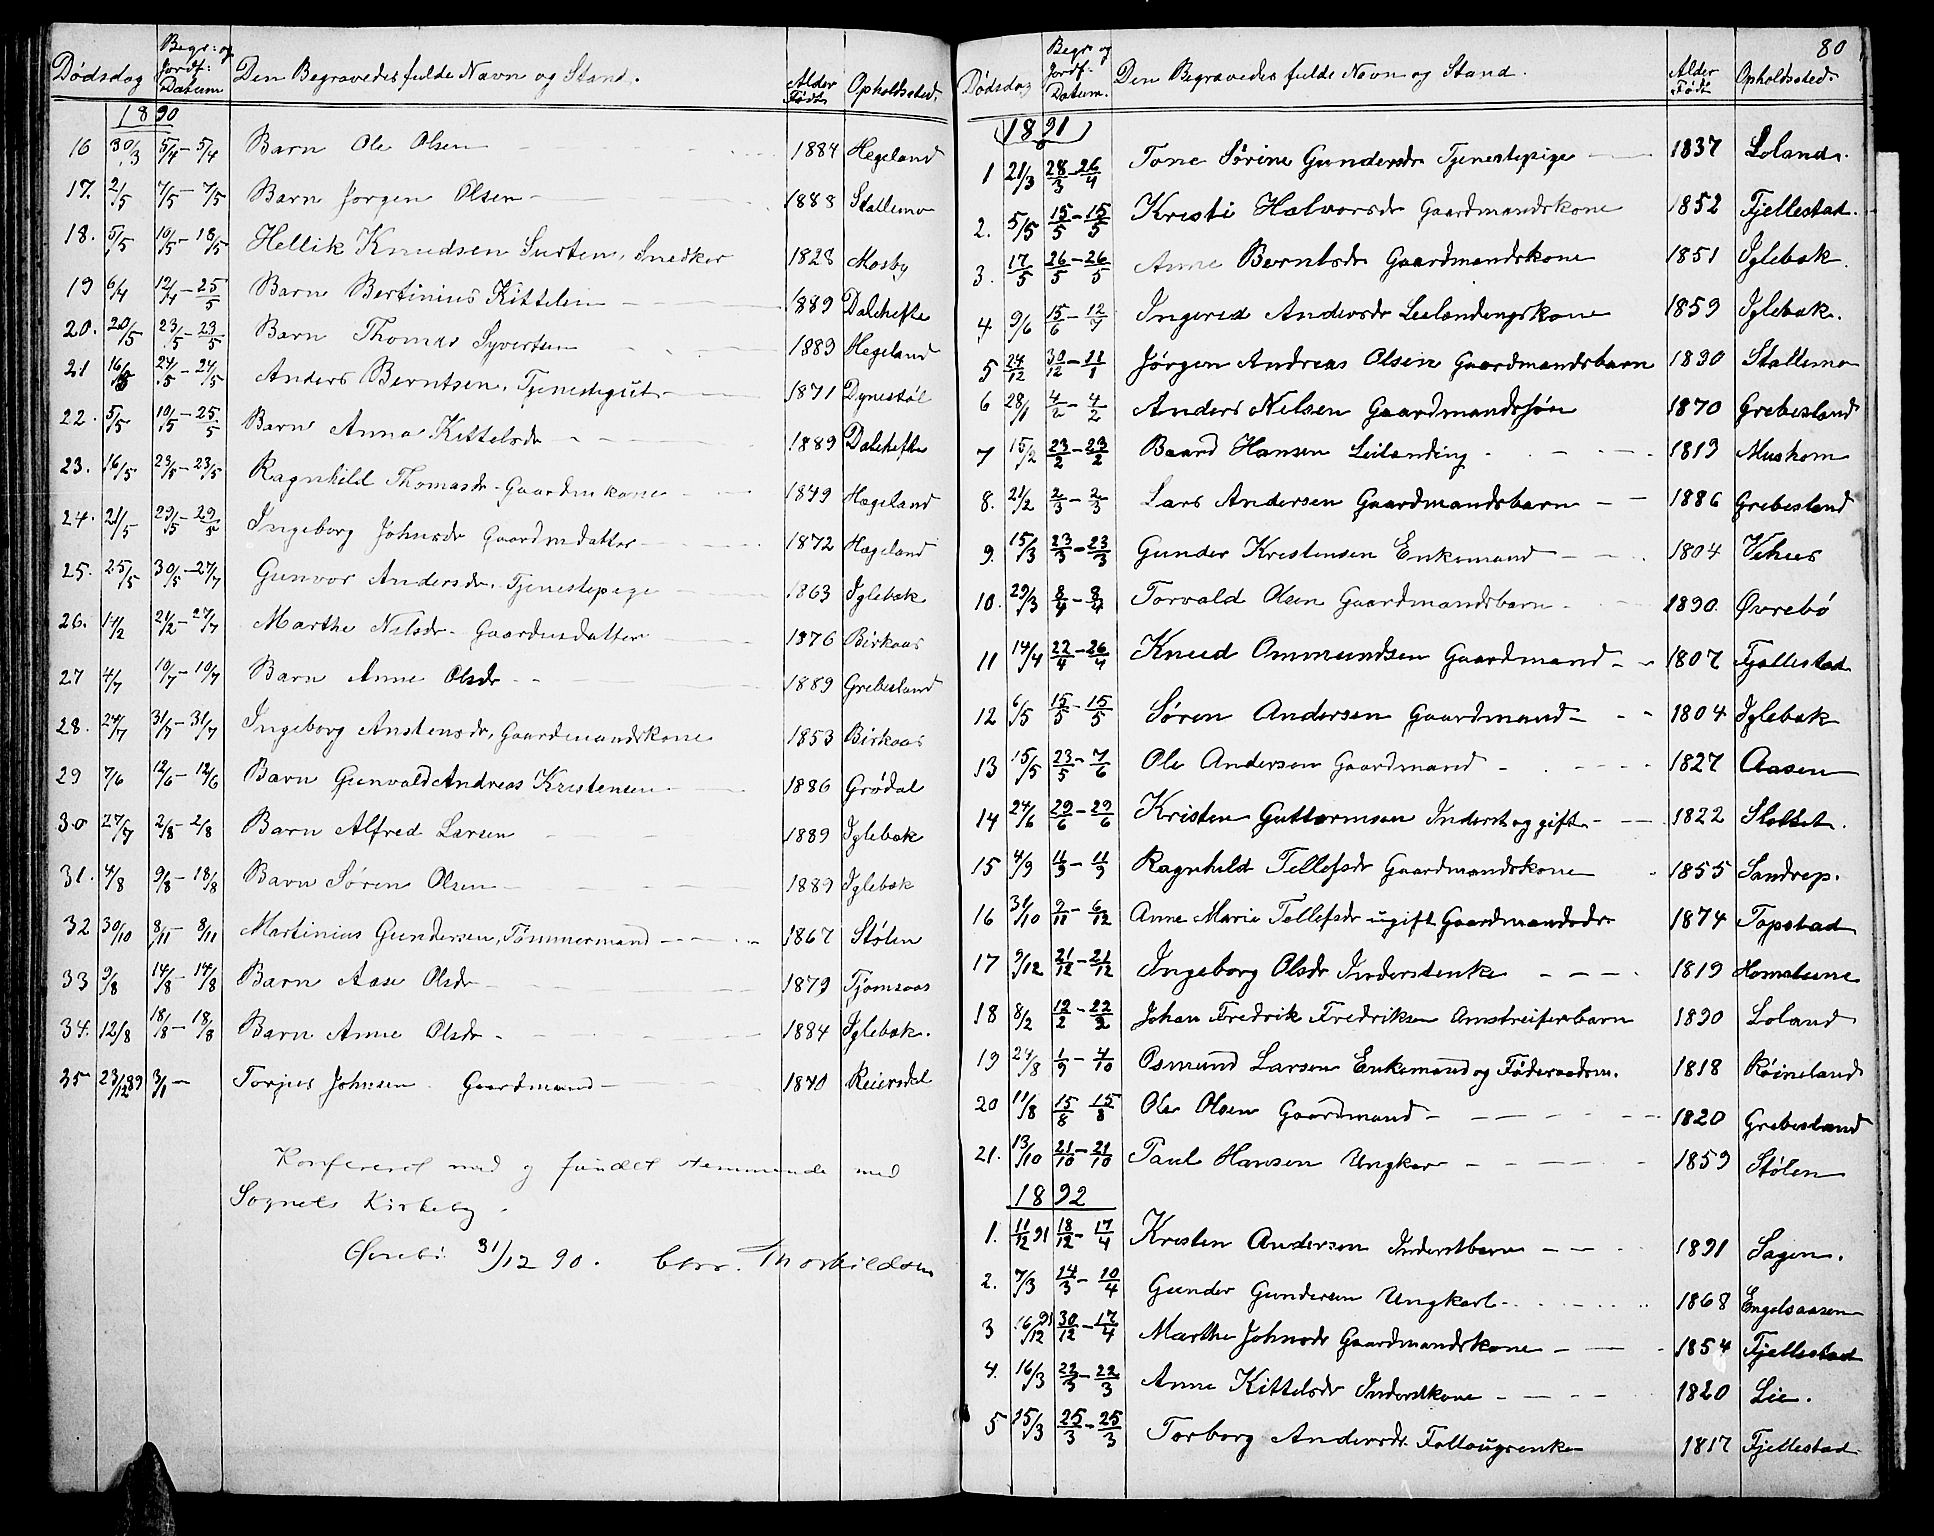 Dødsdag Begr: og Jordf: Datum Den Begravedes fulde Navn og Stand. Alder Født Opholdssted.
1890
16 30/3 5/4 – 5/4 Barn Ole Olsen 1884 Hegeland
17. 2/5 7/5 – 7/5 Barn Jørgen Olsen 1888 Stallemo
18. 5/5 10/5 – 18/5 Hellik Knudsen Surten, Snedker 1828 Mosby
19 6/4 12/4 – 25/5 Barn Bertinius Kittelsen 1889 Dalehefte
20. 20/5 23/5 – 23/5 Barn Thomas Syvertsen 1889 Hegeland
21 16/5 24/5 – 24/5 Anders Berntsen, Tjenestegut 1871 Dynestøl
22. 5/5 10/5 – 25/5 Barn Anna Kittelsdr 1889 Dalehefte
23. 16/5 23/5 – 23/5 Ragnhild Thomasdr. Gaardmkone 1849 Hægeland
24. 21/5 29/5 – 29/5 Ingeborg Johnsdr Gaardmdatter 1872 Hægeland
25. 25/5 30/5 – 27/7 Gunvor Andersdr. Tjenestepige 1863 Iglebæk
26. 14/2 21/2 – 27/7 Marthe Nilsdr. Gaardmdatter 1876 Birkaas
27 4/7 10/7 – 10/7 Barn Anne Olsdr 1889 Grebesland
28. 24/7 31/7 – 31/7 Ingeborg Anstensdr, Gaardmandskone 1853 Birkaas
29 7/6 12/6 – 12/6 Barn Gunvald Andreas Kristensen 1886 Grødal
30 27/7 2/8 – 2/8 Barn Alfred Larsen 1889 Iglebæk
31. 4/8 9/8 – 18/8 Barn Søren Olsen 1889 Iglebæk
32 30/10 8/11 – 8/11 Martinius Gundersen, Tømmermand 1867 Stølen
33 9/8 14/8 – 14/8 Barn Aase Olsdr 1879 Tjomsaas
34. 12/8 18/8 – 18/8 Barn Anne Olsdr 1884 Iglebæk.
35 23/12 89 3/1 – Torjus Johnsen Gaardmand 1840 Reiersdal
Konfereret med og fundet stemmende med
Sognets Kirkebog.
Øvrebø 31/12 90. Chr. Thorkildsen
80
Dødsdag Begr og Jordf: Datum. Den Begravedes fulde Navn og Stand. Alder Født Opholdssted.
1891
1 21/3 28/3 – 26/4 Tone Sørine Gundersdr Tjenestepige 1837 Loland.
2. 5/5 15/5 – 15/5 Kristi Halvorsdr Gaardmandskone 1852 Fjellestad.
3. 17/5 26/5 – 26/5 Anne Berntsdr Gaardmandskone 1851 Iglebæk.
4 9/6 15/6 – 12/7 Ingered Andersdr Leilændingskone 1859 Iglebæk.
5 24/12 30/12 – 11/1 Jørgen Andreas Olsen Gaardmandsbarn 1890 Stallemo
6 28/1 4/2 – 4/2 Anders Nilsen Gaardmandssøn 1870 Grebesland
7 15/2 23/2 – 23/2 Baard Hansen Leilænding 1813 Muskom
8. 21/2 2/3 – 2/3 Lars Andersen Gaardmandsbarn 1886 Grebesland
9. 15/3 23/3 – 23/3 Gunder Kristensen Enkemand 1804 Vehus
10. 29/3 8/4 – 8/4 Torvald Olsen Gaardmandsbarn 1890. Øvrebø
11 14/4 22/4 – 26/4 Knud Ommundsen Gaardmand 1807 Fjellestad
12 6/5 15/5 – 15/5 Søren Andersen Gaardmand 1804 Iglebæk
13 15/5 23/5 – 7/6 Ole Andersen Gaardmand 1827 Aasen
14 24/6 29/6 – 29/6 Kristen Guttormsen Inderst og gift 1822 Slottet.
15 4/9 11/9 – 11/9 Ragnhild Tellefsdr Gaardmandskone 1855 Sandrep.
16 31/10 9/11 – 6/12 Anne Marie Tellefsdr ugift Gaardmandsdr 1874 Topstad
17 9/12 21/12 – 21/12 Ingeborg Olsdr Inderstenke 1819 Homstene
18 8/2 12/2 – 22/2 Johan Fredrik Fredriksen Omstreiferbarn 1890 Loland
19 24/8 1/9 – 4/10 Osmund Larsen Enkemand og Føderaadsm. 1818 Røineland
20 11/8 15/8 15/8 Ole Olsen Gaardmand 1820 Grebesland
21. 13/10 21/10 – 21/10 Paul Hansen Ungkar 1859 Stølen
1892
1. 11/12 91 18/12 – 17/4 Kristen Andersen Inderstbarn 1891 Sagen.
2. 7/3 14/3 – 10/4 Gunder Gundersen Ungkarl 1868 Engelsaasen
3 16/12 91 30/12 – 17/4 Marthe Johnsdr Gaardmandskone 1854 Fjellestad
4. 16/3 22/3 – 22/3 Anne Kittelsdr Inderstkone 1820 Lie.
5 15/3 25/3 – 25/3 Torborg Andersdr. Føllaugsenke 1817 Fjellestad